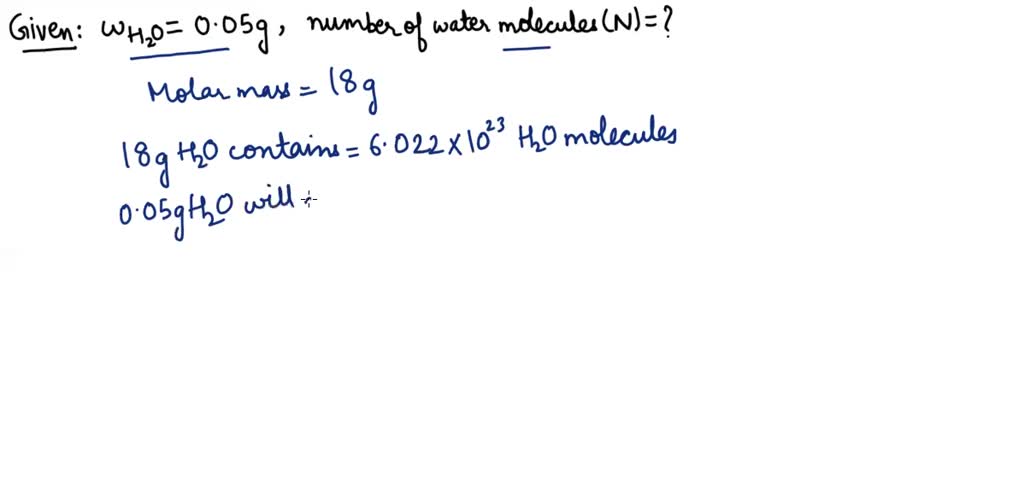 Given: w_H₂O = 0.05g, number of water molecules (N) = ?
Molar mass = 18g
18g H₂O contains = 6.022 × 10²³ H₂O molecules
0.05g H₂O will